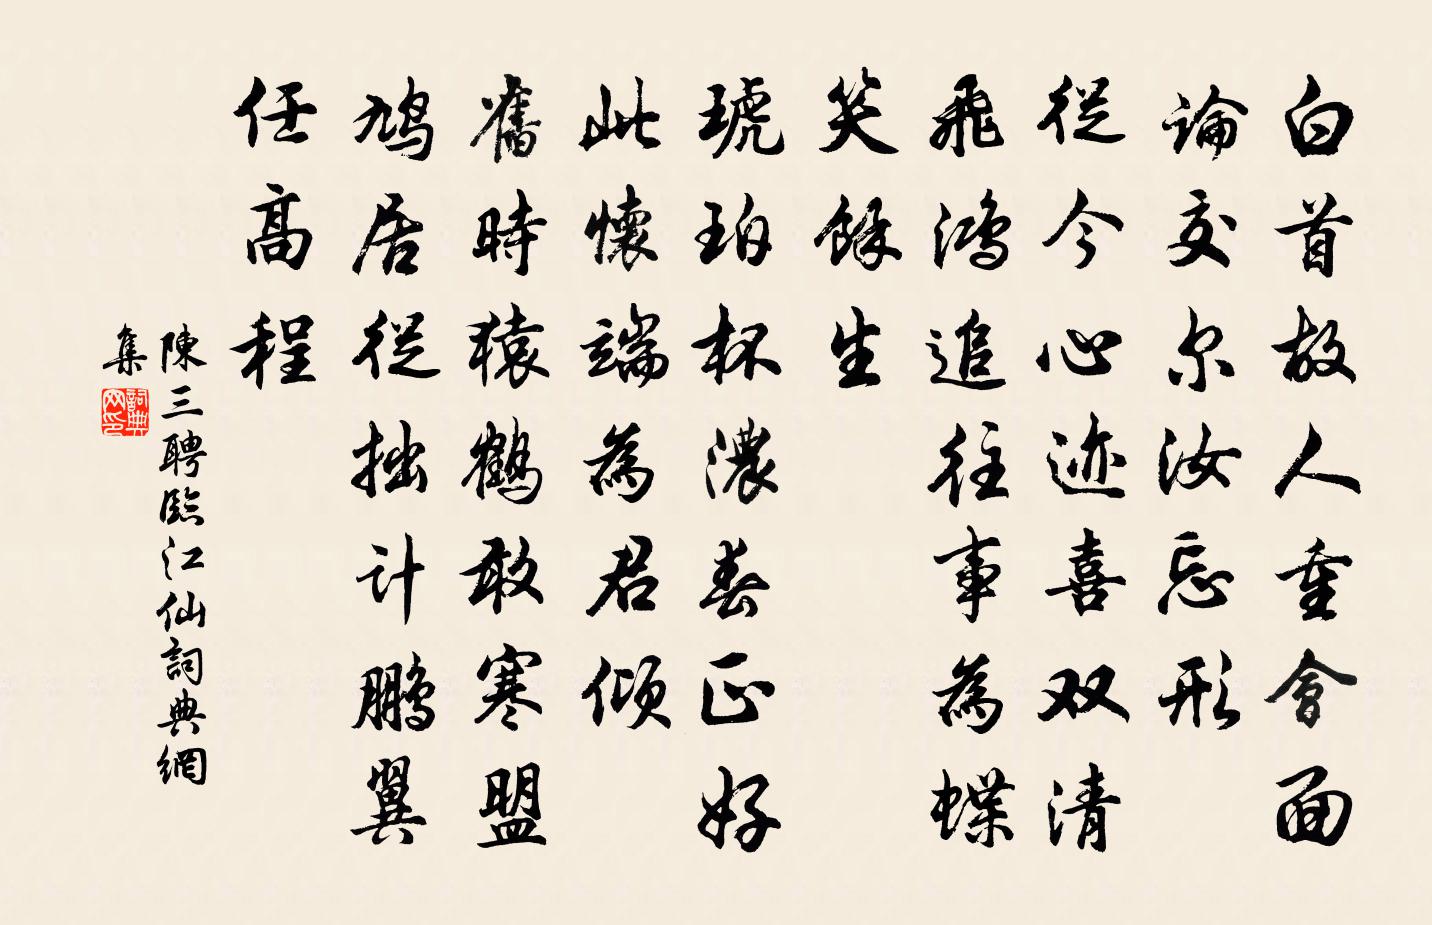 白首故人重會面
論交尔汝忘形
從今心迹喜双清
飛鴻追往事為蝶
笑餘生
琥珀杯濃春正好
此懷端為君傾
舊時猿鶴敢寒盟
鳩居從拙计鹏翼
任高程
陳三聘臨江仙詞典網
集
詞典网印